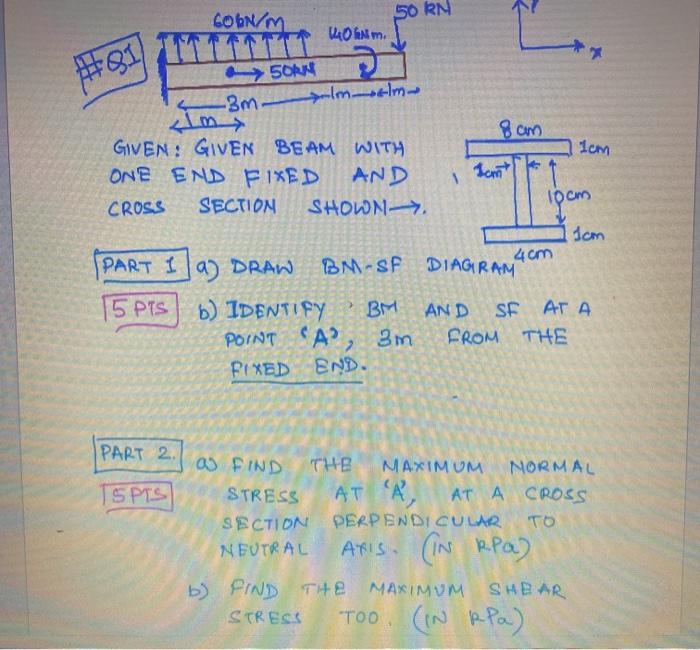 60kN/m
50 kN
Y
140kNm.
#Q1
x
50kN
3m
1m
1m
1m
GIVEN: GIVEN BEAM WITH
ONE END FIXED AND
CROSS SECTION SHOWN→.
8 cm
1cm
1cm
10cm
1cm
4cm
PART 1 a) DRAW BM-SF DIAGRAM
5 PTS b) IDENTIFY BM AND SF AT A
POINT 'A', 3m FROM THE
FIXED END.
PART 2. a) FIND THE MAXIMUM NORMAL
5 PTS STRESS AT 'A', AT A CROSS
SECTION PERPENDICULAR TO
NEUTRAL AXIS. (IN kPa)
b) FIND THE MAXIMUM SHEAR
STRESS TOO. (IN kPa)